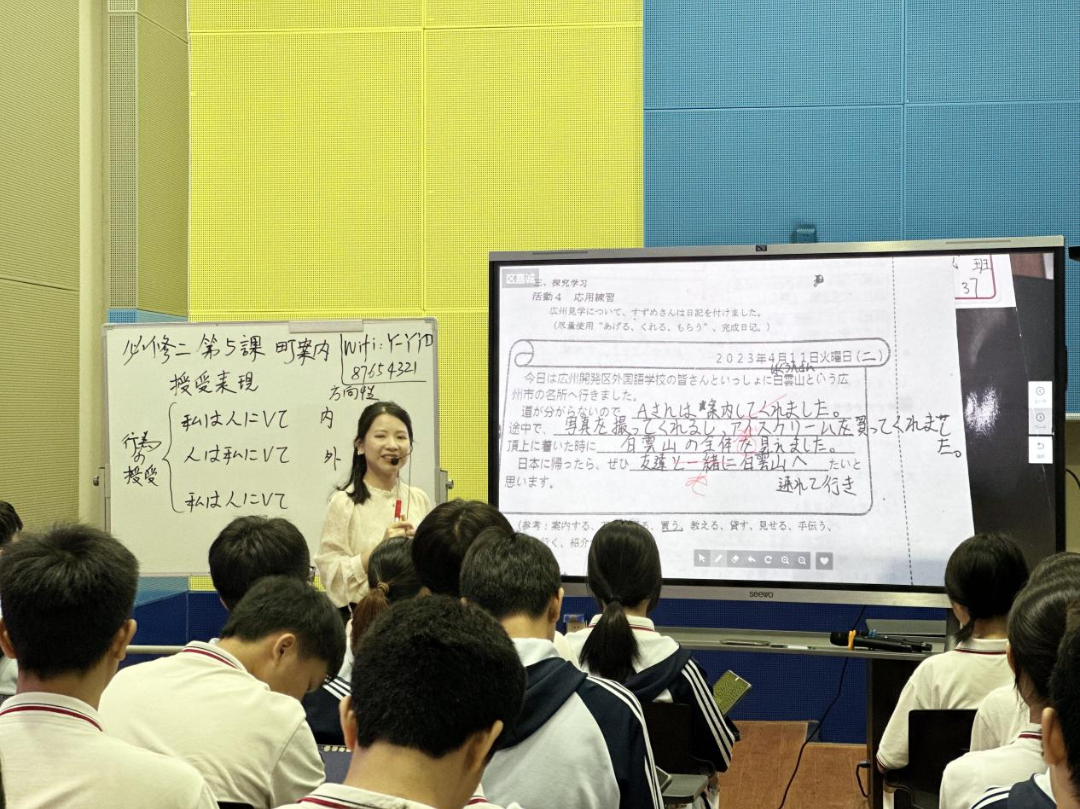 必修二 第5課 町案内
Wifi: Y-Y1D
87654321
授受表現
方向性
私は人にVて 内
行為の授受
人は私にVて 外
私は人にVて
区嘉诚
三、探究学习
活動4 応用練習
広州見学について、すずめさんは日記を付けました。
(尽量使用"あげる、くれる、もらう"，完成日记。)
班
37
2023年4月11日火曜日(二)
はくうんさん
今日は広州開発区外国語学校の皆さんといっしょに白雲山という広
州市の名所へ行きました。
道が分からないので、Aさんは案内してくれました。
途中で、写真を撮ってくれるし、アイスクリームを買ってくれまし
た。
頂上に着いた時に白雲山の全体を見えました。
日本に帰ったら、ぜひ友達と一緒に白雲山へたいと
連れて行き
思います。
(参考：案内する、
買う、教える、貸す、見せる、手伝う、
行く、紹介
seewo